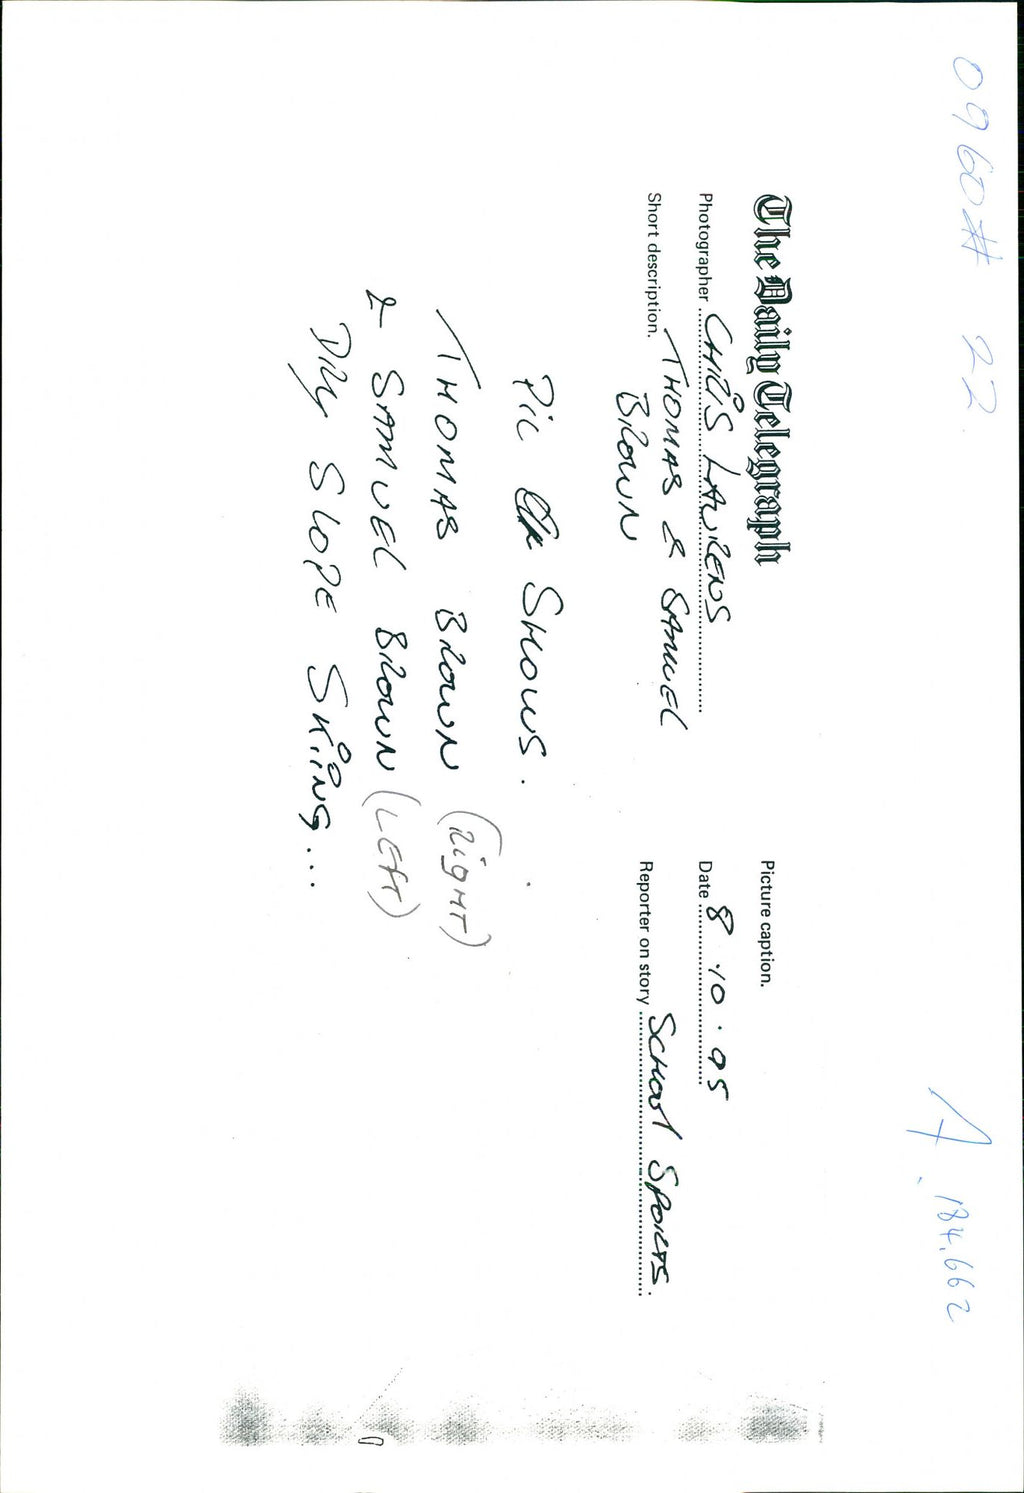 0960# 22
A. 184,662
The Daily Telegraph
Picture caption.
Photographer CHRIS LAURENS
Date 8.10.95
Short description. THOMAS & SAMUEL
BROWN
Reporter on story SCHOOL SPORTS.
PIC SHOWS.
THOMAS BROWN (RIGHT)
& SAMUEL BROWN (LEFT)
DRY SLOPE SKIING...